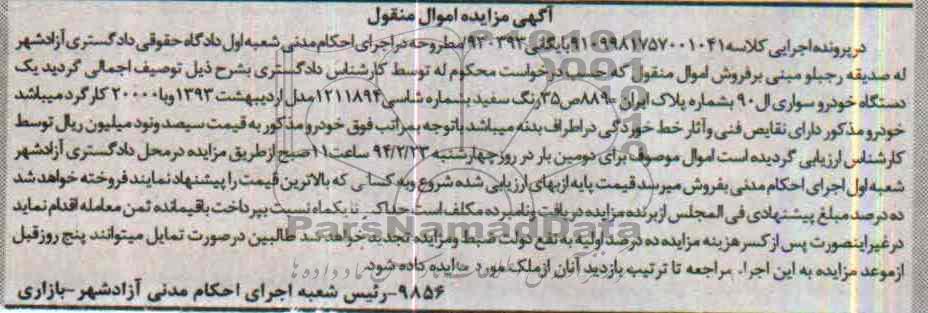 آگهی مزایده اموال منقول
در پرونده اجرایی کلاسه ۹۱۰۹۹۸۱۷۵۷۰۰۱۰۴۱ بایگانی ۹۳۰۳۹۳ مطروحه در اجرای احکام مدنی شعبه اول دادگاه حقوقی دادگستری آزادشهر
له صدیقه رجبلو مبنی بر فروش اموال منقول که حسب درخواست محکوم له توسط کارشناس دادگستری بشرح ذیل توصیف اجمالی گردید یک
دستگاه خودرو سواری ال ۹۰ بشماره پلاک ایران ۸۸۹ص۳۵ رنگ سفید بشماره شاسی ۱۲۱۱۸۹۴ مدل اردیبهشت ۱۳۹۳ وبا ۲۰۰۰۰ کارکرد میباشد
خودرو مذکور دارای نقایص فنی و آثار خط خوردگی در اطراف بدنه میباشد باتوجه بمراتب فوق خودرو مذکور به قیمت سیصد ونود میلیون ریال توسط
کارشناس ارزیابی گردیده است اموال موصوف برای دومین بار در روز چهارشنبه ۹۴/۲/۲۳ ساعت ۱۱ صبح از طریق مزایده در محل دادگستری آزادشهر
شعبه اول اجرای احکام مدنی بفروش میرسد قیمت پایه از بهای ارزیابی شده شروع وبه کسانی که بالاترین قیمت را پیشنهاد نمایند فروخته خواهد شد
ده درصد مبلغ پیشنهادی فی المجلس از برنده مزایده دریافت ونامبرده مکلف است حداکثر تا یکماه نسبت بپرداخت باقیمانده ثمن معامله اقدام نماید
در غیر اینصورت پس از کسر هزینه مزایده ده درصد اولیه به نفع دولت ضبط ومزایده تجدید خواهد شد طالبین در صورت تمایل میتوانند پنج روز قبل
از موعد مزایده به این اجرا مراجعه تا ترتیب بازدید آنان از ملک مورد مزایده داده شود.
۹۸۵۶-رئیس شعبه اجرای احکام مدنی آزادشهر-بازاری
ParsNamadData